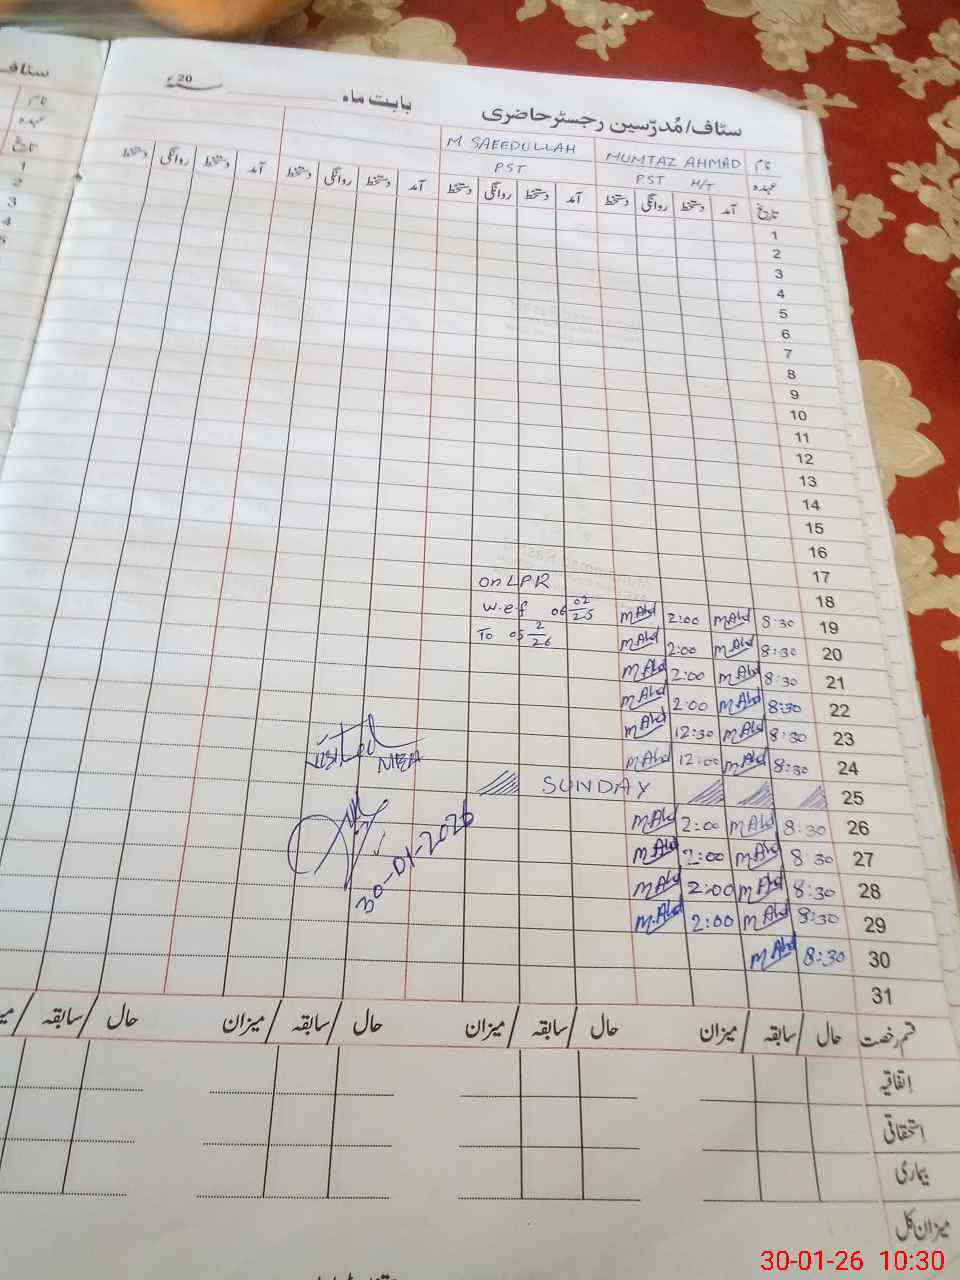 سٹاف/مُدرّسین رجسٹر حاضری بابت ماہ 20ء
نام MUMTAZ AHMAD M SAEEDULLAH
عہدہ PST H/T PST
تاریخ آمد دستخط روانگی دستخط آمد دستخط روانگی دستخط آمد دستخط روانگی دستخط آمد دستخط روانگی دستخط
1
2
3
4
5
6
7
8
9
10
11
12
13
14
15
16
17
on LPR
18
w.e.f 06 02/25 M Ahd 2:00 M Ahd 8:30 19
To 05 2/26 M Ahd 2:00 M Ahd 8:30 20
M Ahd 2:00 M Ahd 8:30 21
M Ahd 2:00 M Ahd 8:30 22
M Ahd 12:30 M Ahd 8:30 23
M Ahd 12:00 M Ahd 8:30 24
SUNDAY 25
M Ahd 2:00 M Ahd 8:30 26
M Ahd 2:00 M Ahd 8:30 27
M Ahd 2:00 M Ahd 8:30 28
M Ahd 2:00 M Ahd 8:30 29
M Ahd 8:30 30
31
Visited
MEA
30-01-2026
قسم رخصت حال / سابقہ / میزان حال / سابقہ / میزان حال / سابقہ / میزان حال / سابقہ
اتفاقیہ
استحقاقی
بیماری
میزان کل
سٹاف
نام
عہدہ
تاریخ
1
2
3
4
5
30-01-26 10:30